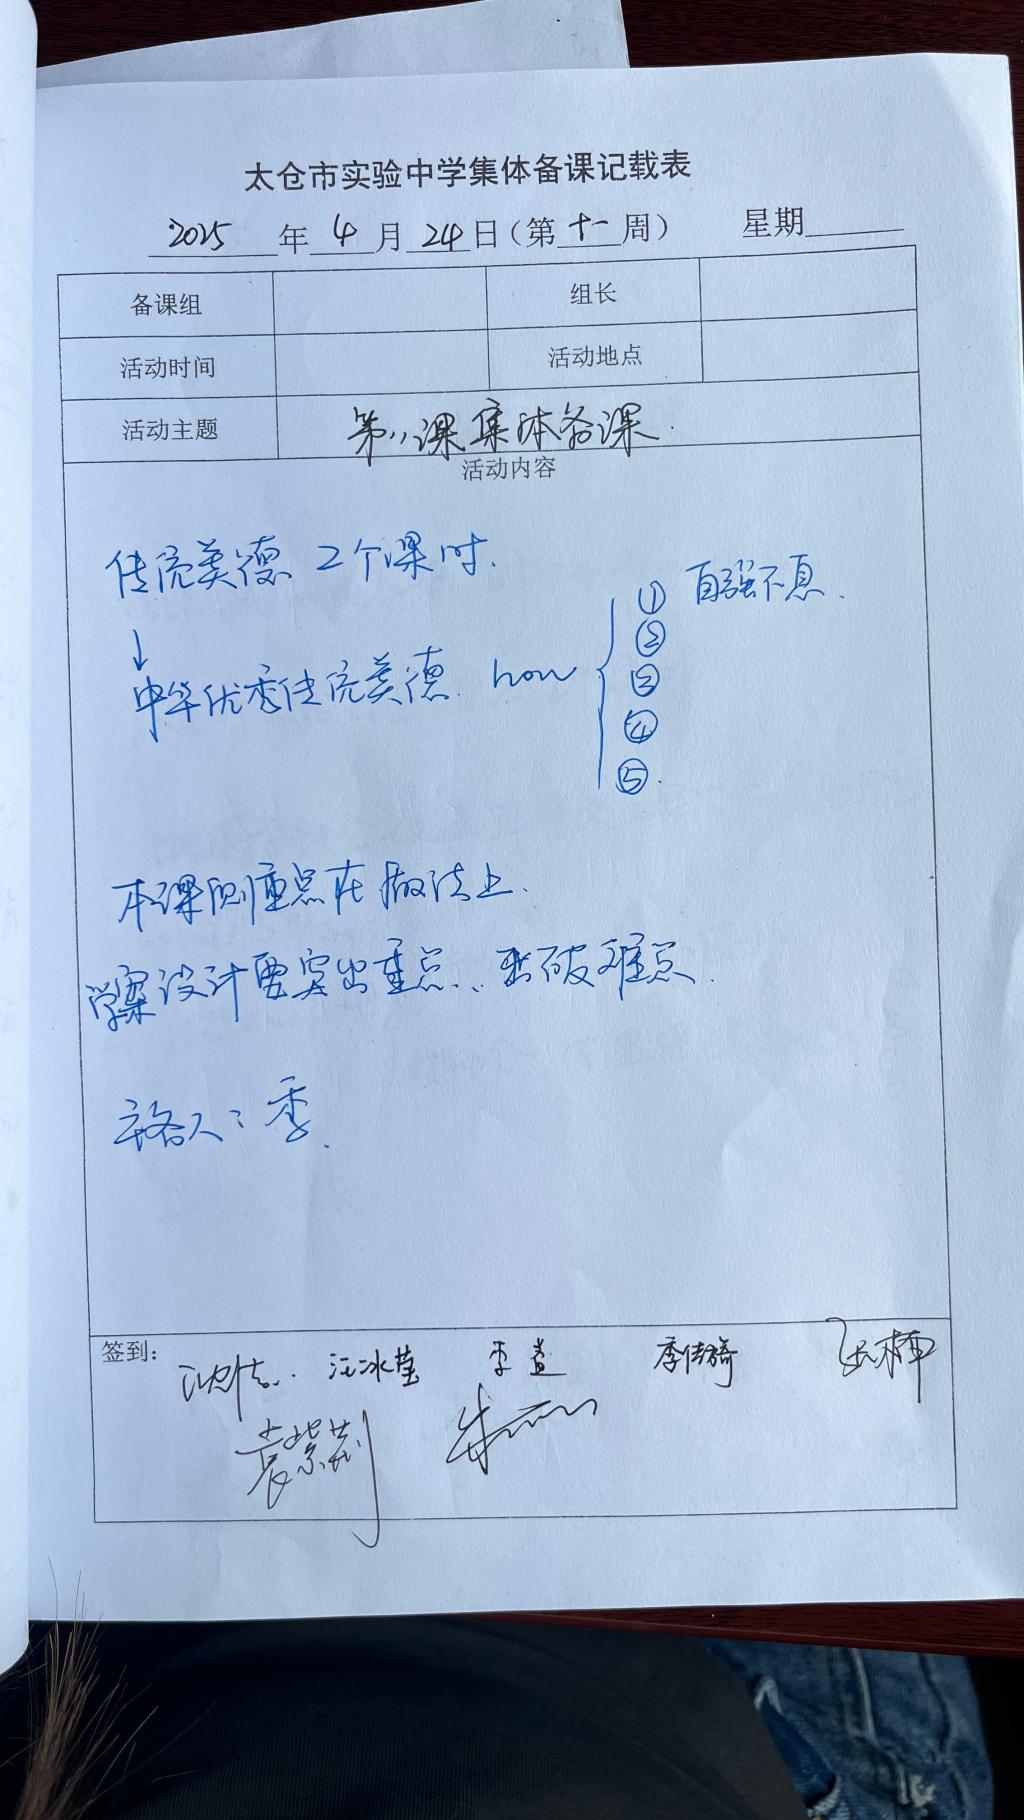 太仓市实验中学集体备课记载表
2025 年 4 月 24 日（第 十一 周） 星期
备课组 组长
活动时间 活动地点
活动主题 第八课集体备课.
活动内容
传统美德 2个课时.
↓
中华优秀传统美德. how { ① 自强不息.
②
③
④
⑤.
本课侧重点在做法上.
学案设计要突出重点、突破难点.
主备人: 季.
签到: 汪冰莹 季萱 季倩旖 张楠
袁紫荆 朱